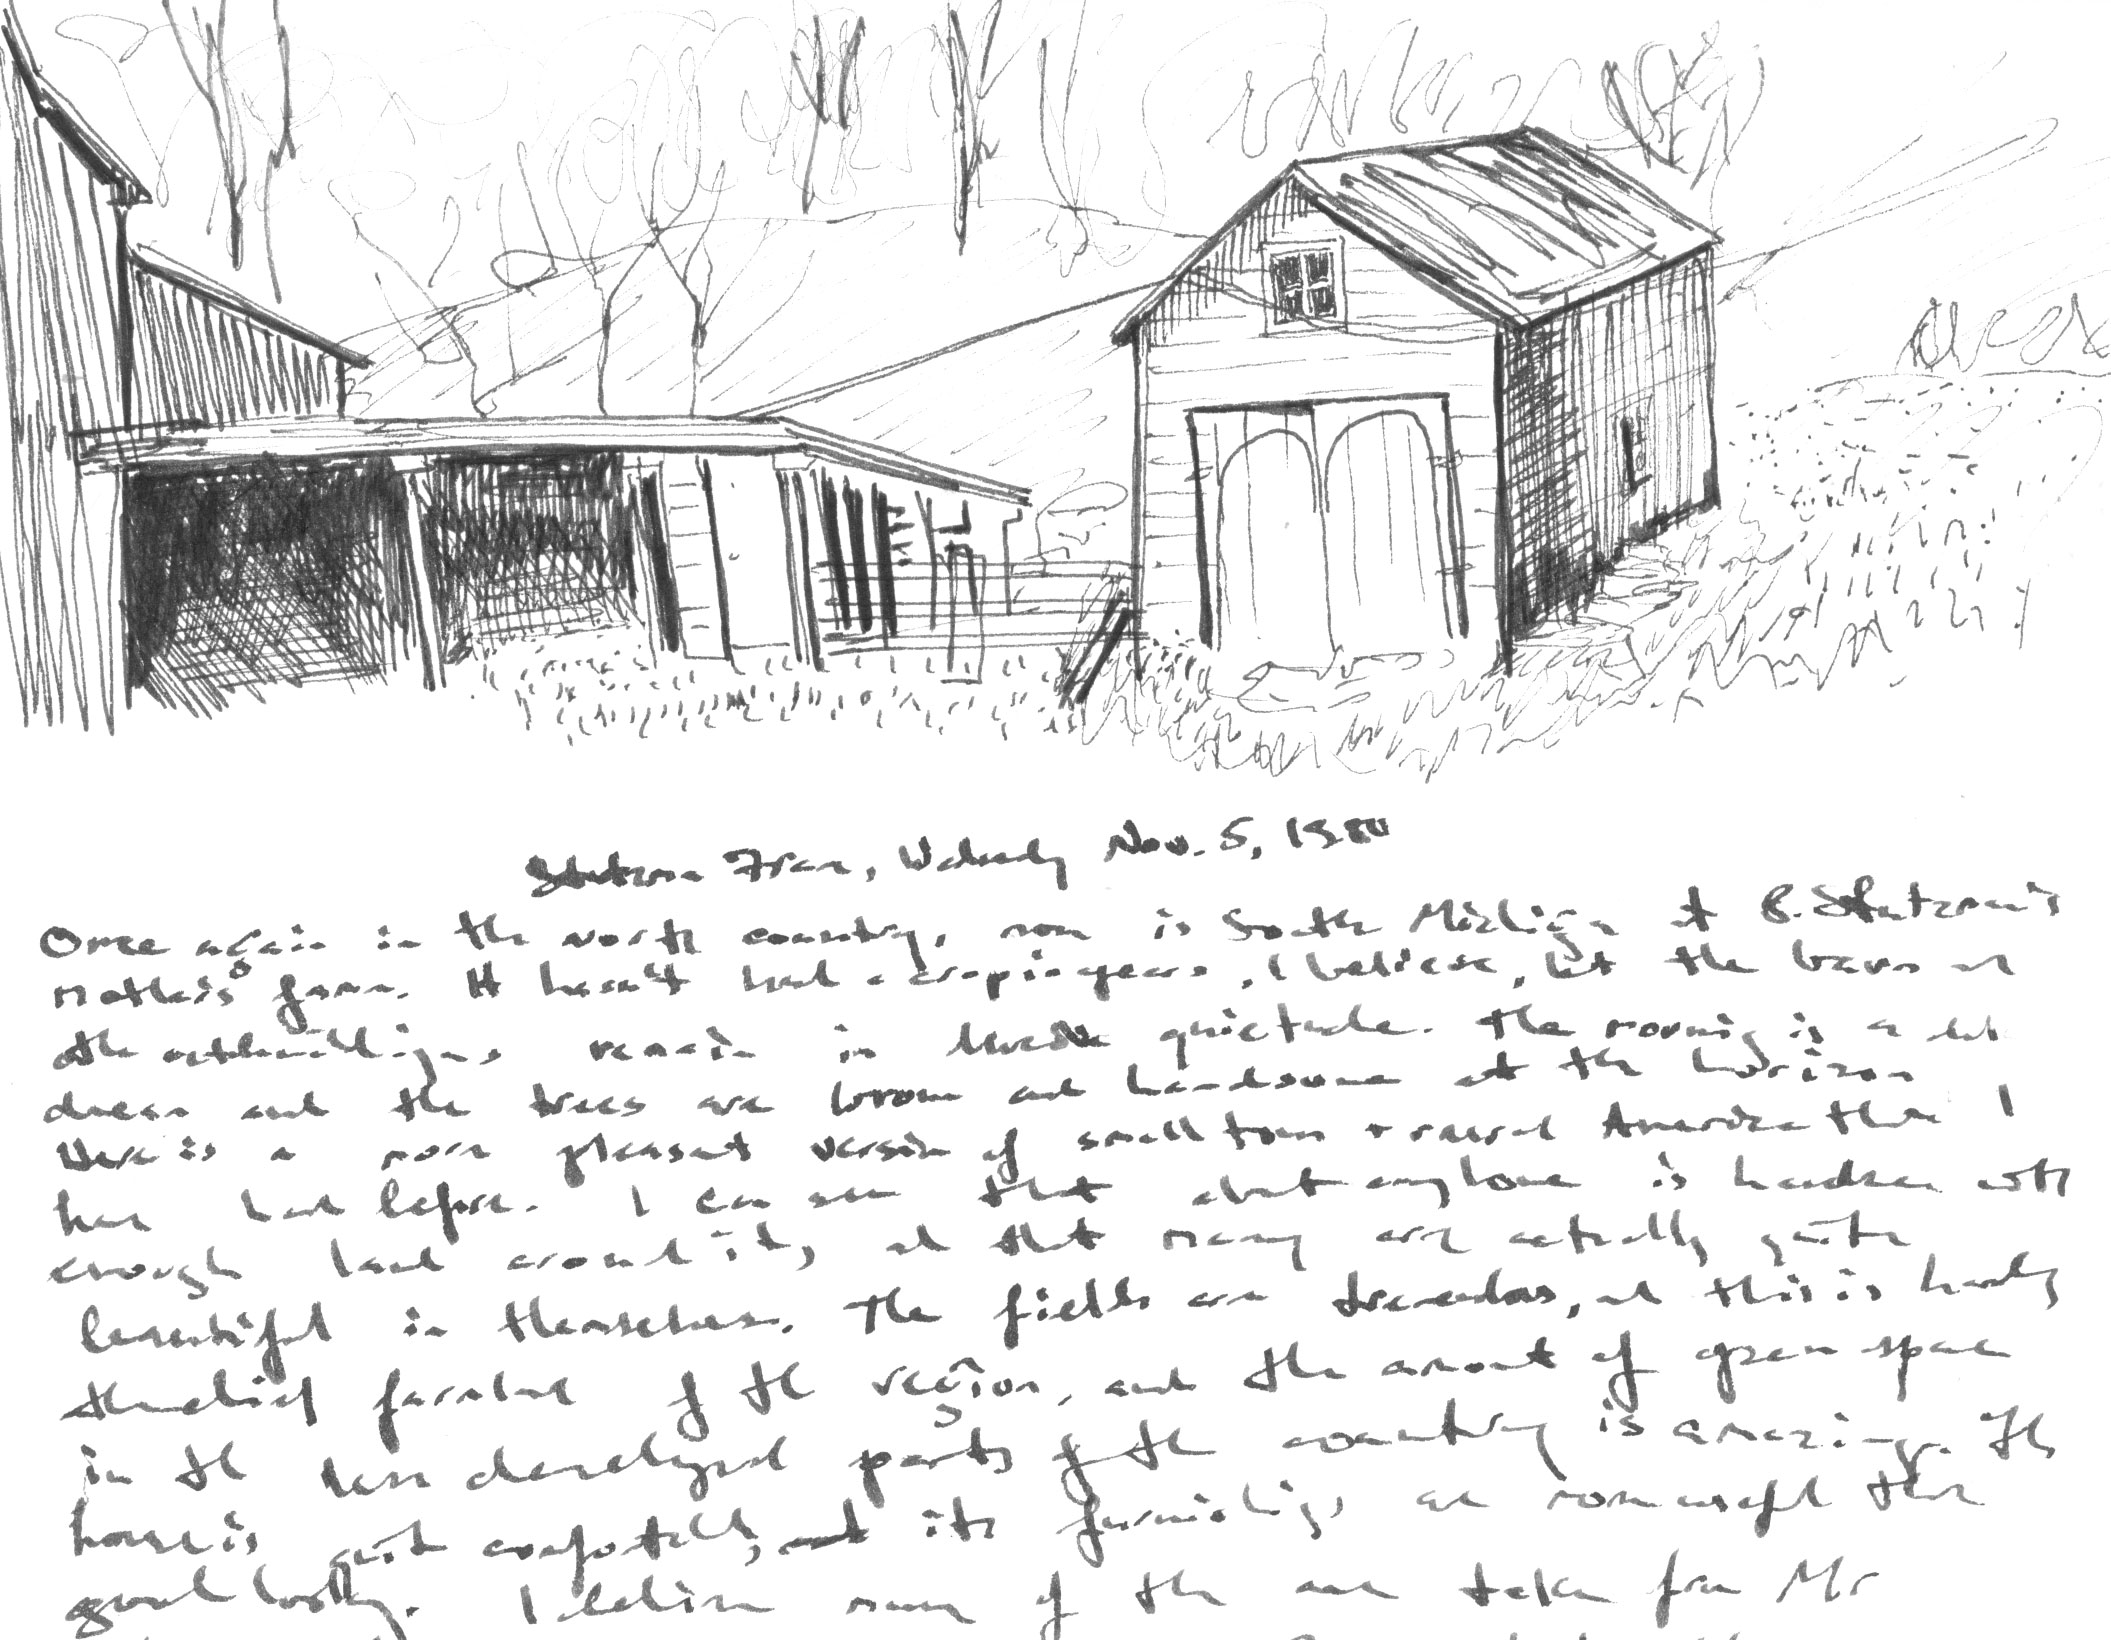 Nov. 5, 1980
Once again in the north country, now in South Michigan at B. Stutzman's
mother's farm. It hasn't had a crop in years, I believe, but the barn and
the outbuildings remain in quietude. The morning is a bit
and the trees are brown and handsome at the horizon
Here is a more pleasant version of small town + rural America than I
have had before. I can see that about any home is handsome with
enough land around it, and that many are actually quite
beautiful in themselves. The fields are tremendous, and this is hardly
the chief farmland of the region, and the amount of green space
in the less developed parts of the country is amazing. The
house is quite comfortable, and its furnishings are more useful than
good looking. I believe many of the are taken from Mr